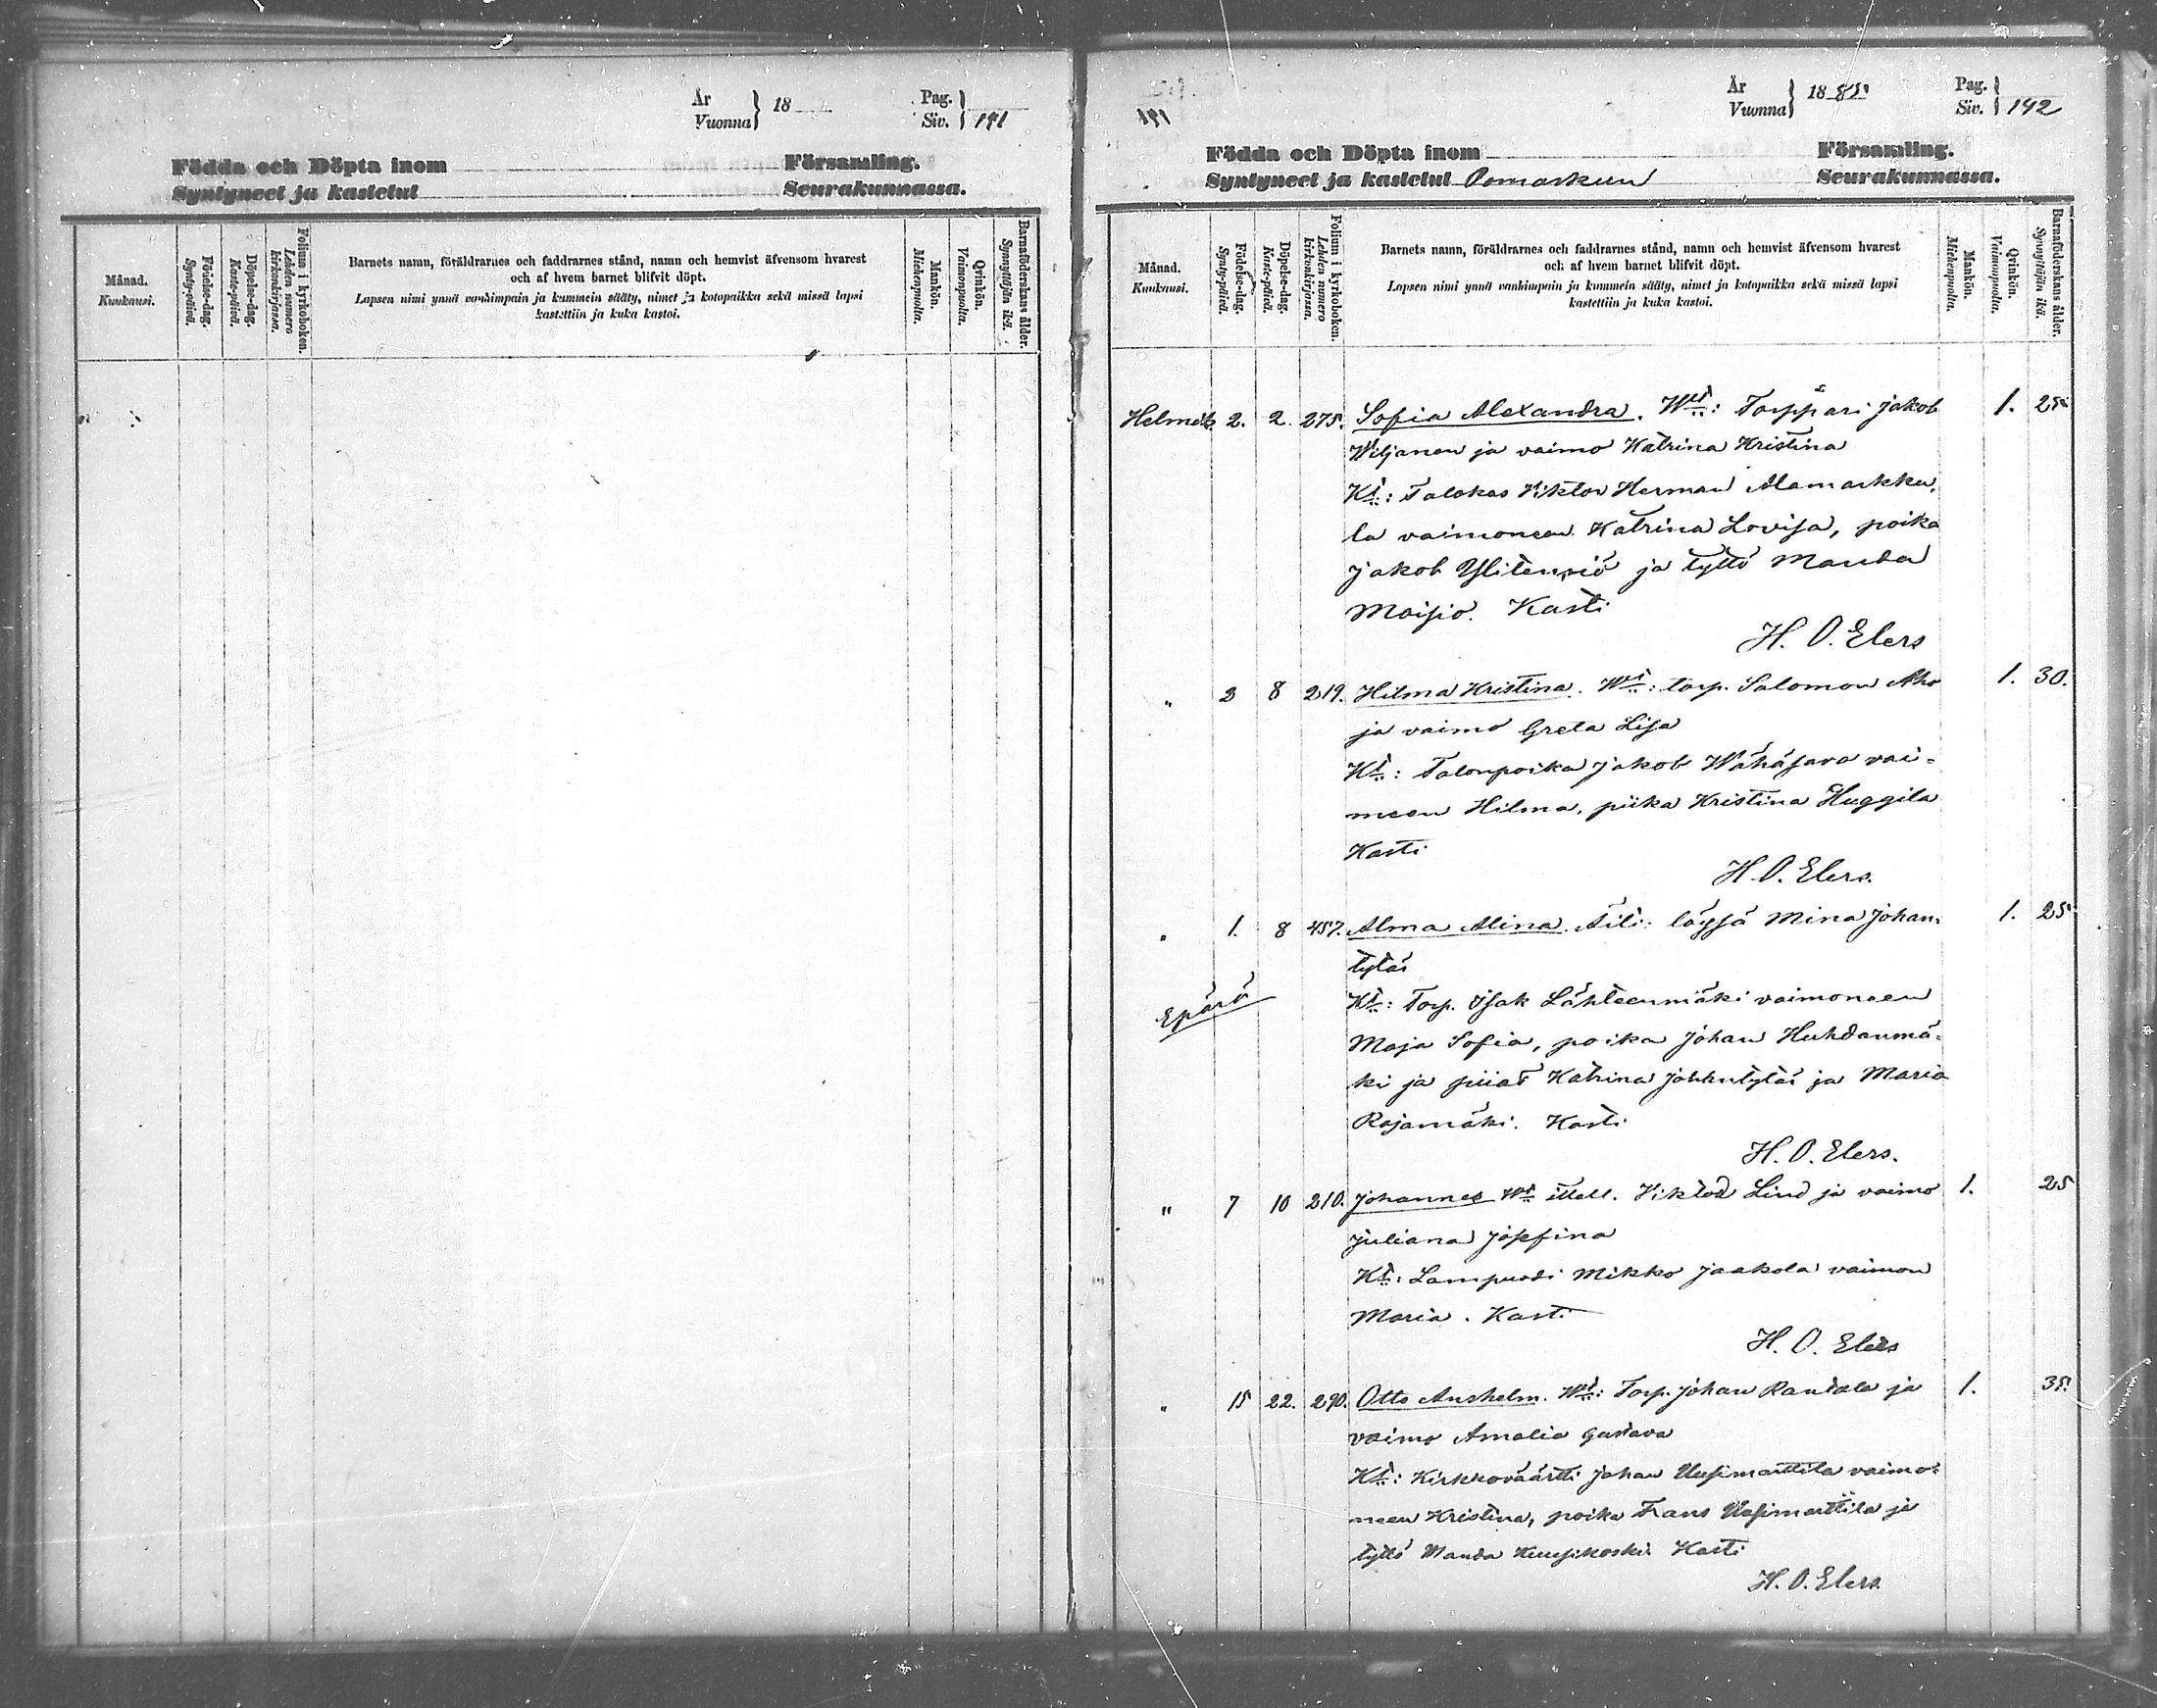 År
Vuonna } 18
Pag.
Siv. } 141
Födda och Döpta inom Församling.
Syntyneet ja kastetut Seurakunnassa.
Månad.
Kuukausi.
Födelse-dag.
Synty-päivä.
Döpelse-dag.
Kaste-päivä.
Folium i kyrkoboken.
Lehden numero kirkonkirjassa.
Barnets namn, föräldrarnes och faddrarnes stånd, namn och hemvist äfvensom hvarest
och af hvem barnet blifvit döpt.
Lapsen nimi ynnä vanhimpain ja kummein sääty, nimet ja kotopaikka sekä missä lapsi
kastettiin ja kuka kastoi.
Mankön.
Miehenpuolta.
Qvinkön.
Vaimonpuolta.
Barnaföderskans ålder.
Synnyttäjän ikä.
År
Vuonna } 1885
Pag.
Siv. } 142
Födda och Döpta inom Församling.
Syntyneet ja kastetut Pomarkun Seurakunnassa.
Månad.
Kuukausi.
Födelse-dag.
Synty-päivä.
Döpelse-dag.
Kaste-päivä.
Folium i kyrkoboken.
Lehden numero kirkonkirjassa.
Barnets namn, föräldrarnes och faddrarnes stånd, namn och hemvist äfvensom hvarest
och af hvem barnet blifvit döpt.
Lapsen nimi ynnä vanhimpain ja kummein sääty, nimet ja kotopaikka sekä missä lapsi
kastettiin ja kuka kastoi.
Mankön.
Miehenpuolta.
Qvinkön.
Vaimonpuolta.
Barnaföderskans ålder.
Synnyttäjän ikä.
Helmik. 2. 2. 275. Sofia Alexandra. Wat: Torppari Jakob 1. 25
Wiljanen ja vaimo Katrina Kristina
Kt: Talokas Viktor Herman Alamarkku-
la vaimoneen Katrina Lovisa, poika
Jakob Yliten niö ja tyttö Manda
Moisio. Kasti
H. O. Elers
" 2 8 219. Hilma Kristina. Wt: torp. Salomon Aho 1. 30.
ja vaimo Greta Lisa
Kt: Talonpoika Jakob Wähäsavo vai-
moen Hilma, piika Kristina Huggila
Kasti
H. O. Elers.
" 1. 8 457. Alma Alina. Äiti: löysä Mina Johan- 1. 25
tytär
Epärä Kt: Torp. Isak Lähteenmäki vaimoneen
Maja Sofia, poika Johan Huhdanmä-
ki ja piiat Katrina Juhhntytär ja Maria
Rajamäki. Kasti
H. O. Elers.
" 7 10 210. Johannes Wt itsell. Viktor Lind ja vaimo 1. 25
Juliana Josefina
Kt: Lampuodi Mikko Jaakola vaimon
Maria. Kasti
H. O. Elers
" 15 22. 290. Otto Anshelm. Wt: Torp. Johan Rantala ja 1. 35.
vaimo Amalia Gustava
Kt: Kirkkoväärtti Johan Uusimarttila vaimo-
neen Kristina, poika Frans Uusimarttila ja
tyttö Manda Kuusikoski Kasti
H. O. Elers